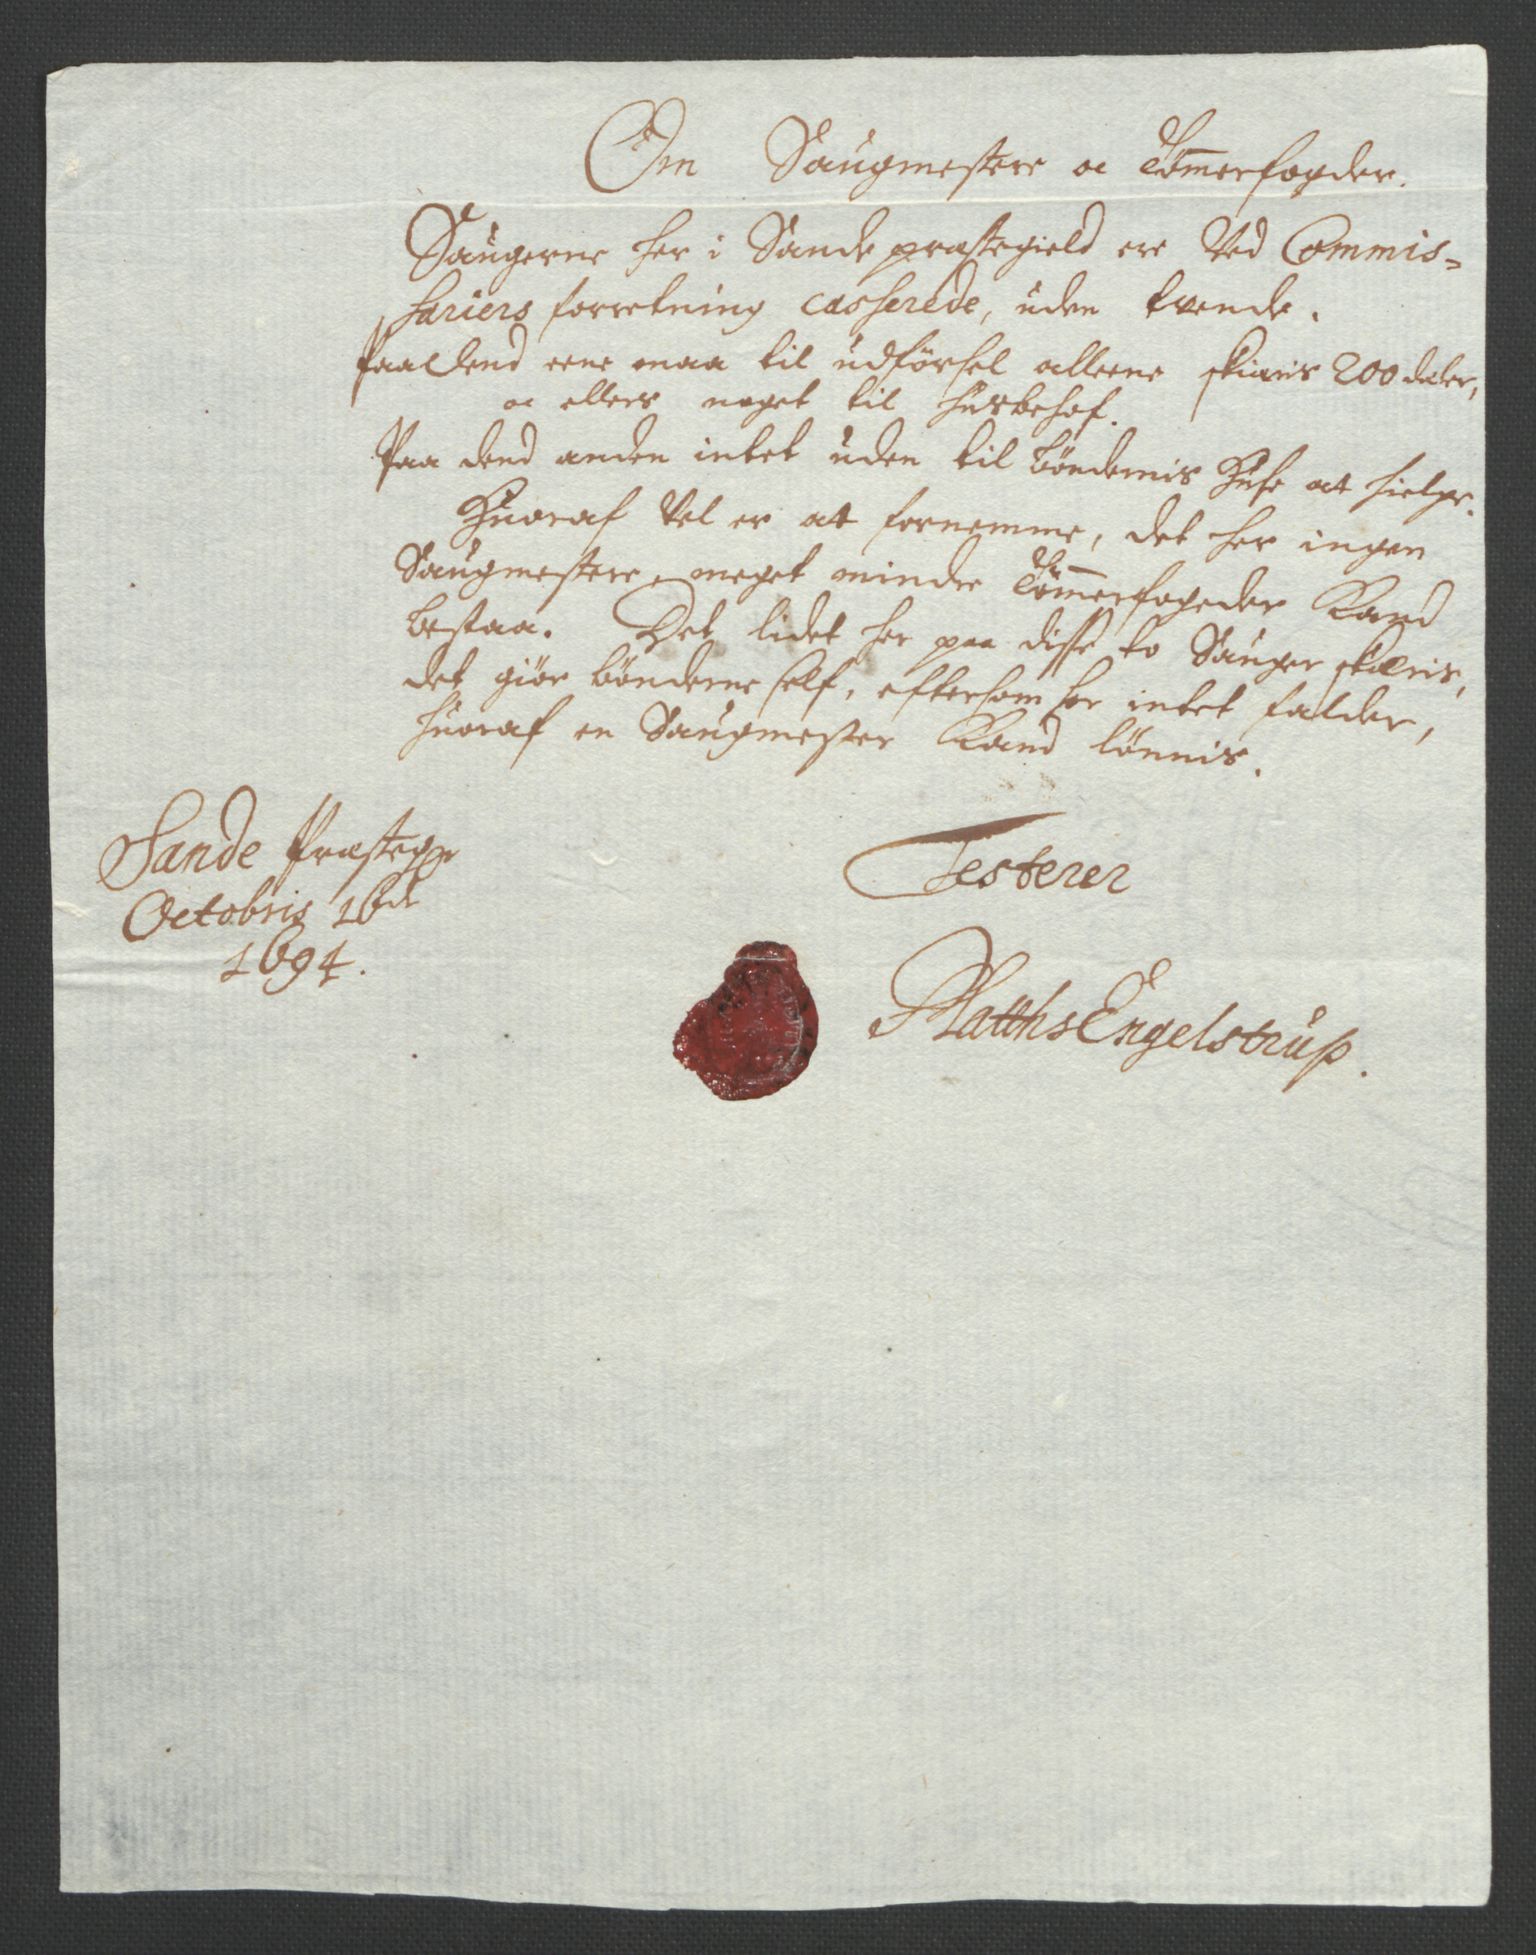 Om Saugmestere oc Tømerfogder.
Saugerne her i Sande præstegield ere Ved Commis=
sariers forretning casserede, uden tvende.
Paa dend eene maa til udførsel alleene skiæris 200 deler,
oc ellers noget til husbehof.
Paa dend anden intet uden til bøndernis Huse at hielpe.
Huoraf Vel er at fornemme, det her ingen
Saugmestere, meget mindre Tømmerfogeder Kand
bestaa. Det lidet her paa disse to Sauger skæris,
det giør bønderne self, eftersom her intet falder,
huoraf en Saugmester Kand lønnis.
Sande Præsteg
Octobris 16de
1694.
Testerer
Matths Engelstrup.